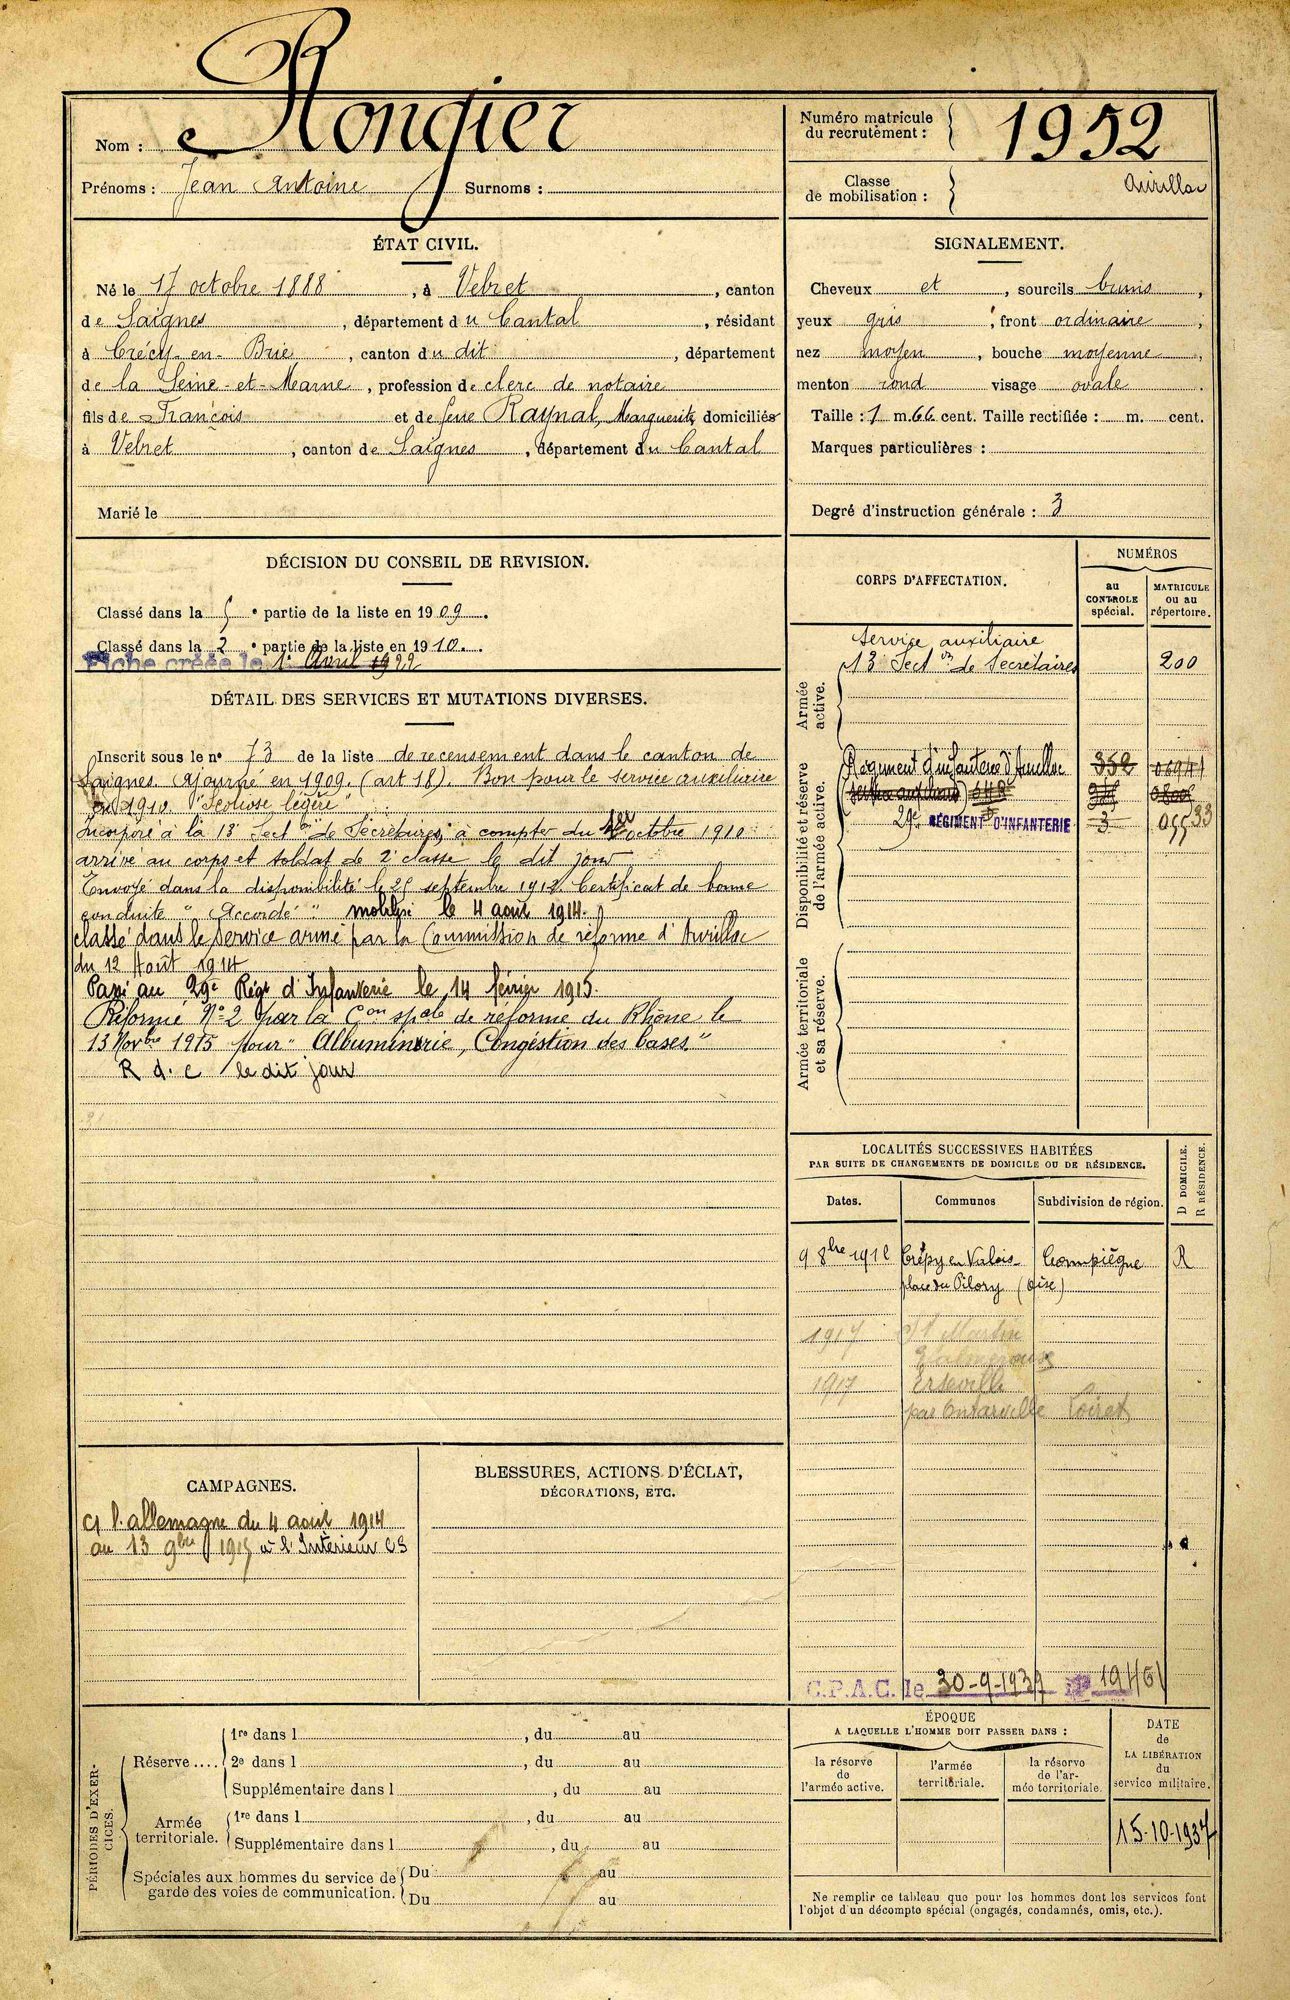 Nom : Rongier
Prénoms : Jean Antoine Surnoms :
Numéro matricule
du recrutement : 1952
Classe
de mobilisation : Aurillac
ÉTAT CIVIL.
Né le 17 octobre 1888, à Vebret, canton
de Saignes, département du Cantal, résidant
à Crécy-en-Brie, canton du dit, département
de la Seine-et-Marne, profession de clerc de notaire
fils de François et de feue Raynal, Marguerite, domiciliés
à Vebret, canton de Saignes, département du Cantal
Marié le
SIGNALEMENT.
Cheveux et, sourcils bruns,
yeux gris, front ordinaire,
nez moyen, bouche moyenne,
menton rond visage ovale.
Taille : 1 m. 66 cent. Taille rectifiée : m. cent.
Marques particulières :
Degré d'instruction générale : 3
DÉCISION DU CONSEIL DE REVISION.
Classé dans la 5e partie de la liste en 1909.
Classé dans la 2e partie de la liste en 1910.
Fiche créée le 1er Avril 1922
DÉTAIL DES SERVICES ET MUTATIONS DIVERSES.
Inscrit sous le no 73 de la liste de recensement dans le canton de
Saignes. Ajourné en 1909. (art 18). Bon pour le service auxiliaire
en 1910. "Scoliose légère"
Incorporé à la 13e Secton de Secrétaires, à compter du 1er octobre 1910
arrivé au corps et soldat de 2e classe le dit jour
Envoyé dans la disponibilité le 25 septembre 1912. Certificat de bonne
conduite "Accordé" mobilisé le 4 août 1914.
classé dans le service armé par la Commission de réforme d'Aurillac
du 12 Août 1914
Passé au 29e Régt d'Infanterie le 14 février 1915.
Réformé No 2 par la Con spale de réforme du Rhône le
13 Novbre 1915 pour "Albuminurie, Congestion des bases"
R d. c le dit jour
CORPS D'AFFECTATION.
NUMÉROS
au
CONTROLE
spécial.
MATRICULE
ou au
répertoire.
Armée
active.
Service auxiliaire
13e Secton de Secrétaires 200
Disponibilité et réserve
de l'armée active.
Régiment d'infanterie d'Aurillac 352
(service auxiliaire)
29e RÉGIMENT D'INFANTERIE 3 05533
Armée territoriale
et sa réserve.
LOCALITÉS SUCCESSIVES HABITÉES
PAR SUITE DE CHANGEMENTS DE DOMICILE OU DE RÉSIDENCE.
D DOMICILE.
R RÉSIDENCE.
Dates. Communes Subdivision de région.
9 8bre 1912 Crépy en Valois Compiègne R
place du Pilory (Oise)
1917 St Martin
Valmeroux
1917
par Loiret
CAMPAGNES.
C/ l'allemagne du 4 août 1914
au 13 9bre 1915 à l'Intérieur CS
BLESSURES, ACTIONS D'ÉCLAT,
DÉCORATIONS, ETC.
C.P.A.C. le 30-9-1937 No 19461
PÉRIODES D'EXERCICES.
Réserve ....
1re dans l, du au
2e dans l, du au
Supplémentaire dans l, du au
Armée
territoriale.
1re dans l, du au
Supplémentaire dans l, du au
Spéciales aux hommes du service de
garde des voies de communication.
Du au
Du au
ÉPOQUE
A LAQUELLE L'HOMME DOIT PASSER DANS :
la réserve
de
l'armée active.
l'armée
territoriale.
la réserve
de l'ar-
mée territoriale.
DATE
de
LA LIBÉRATION
du
service militaire.
15-10-1937
Ne remplir ce tableau que pour les hommes dont les services font
l'objet d'un décompte spécial (engagés, condamnés, omis, etc.).